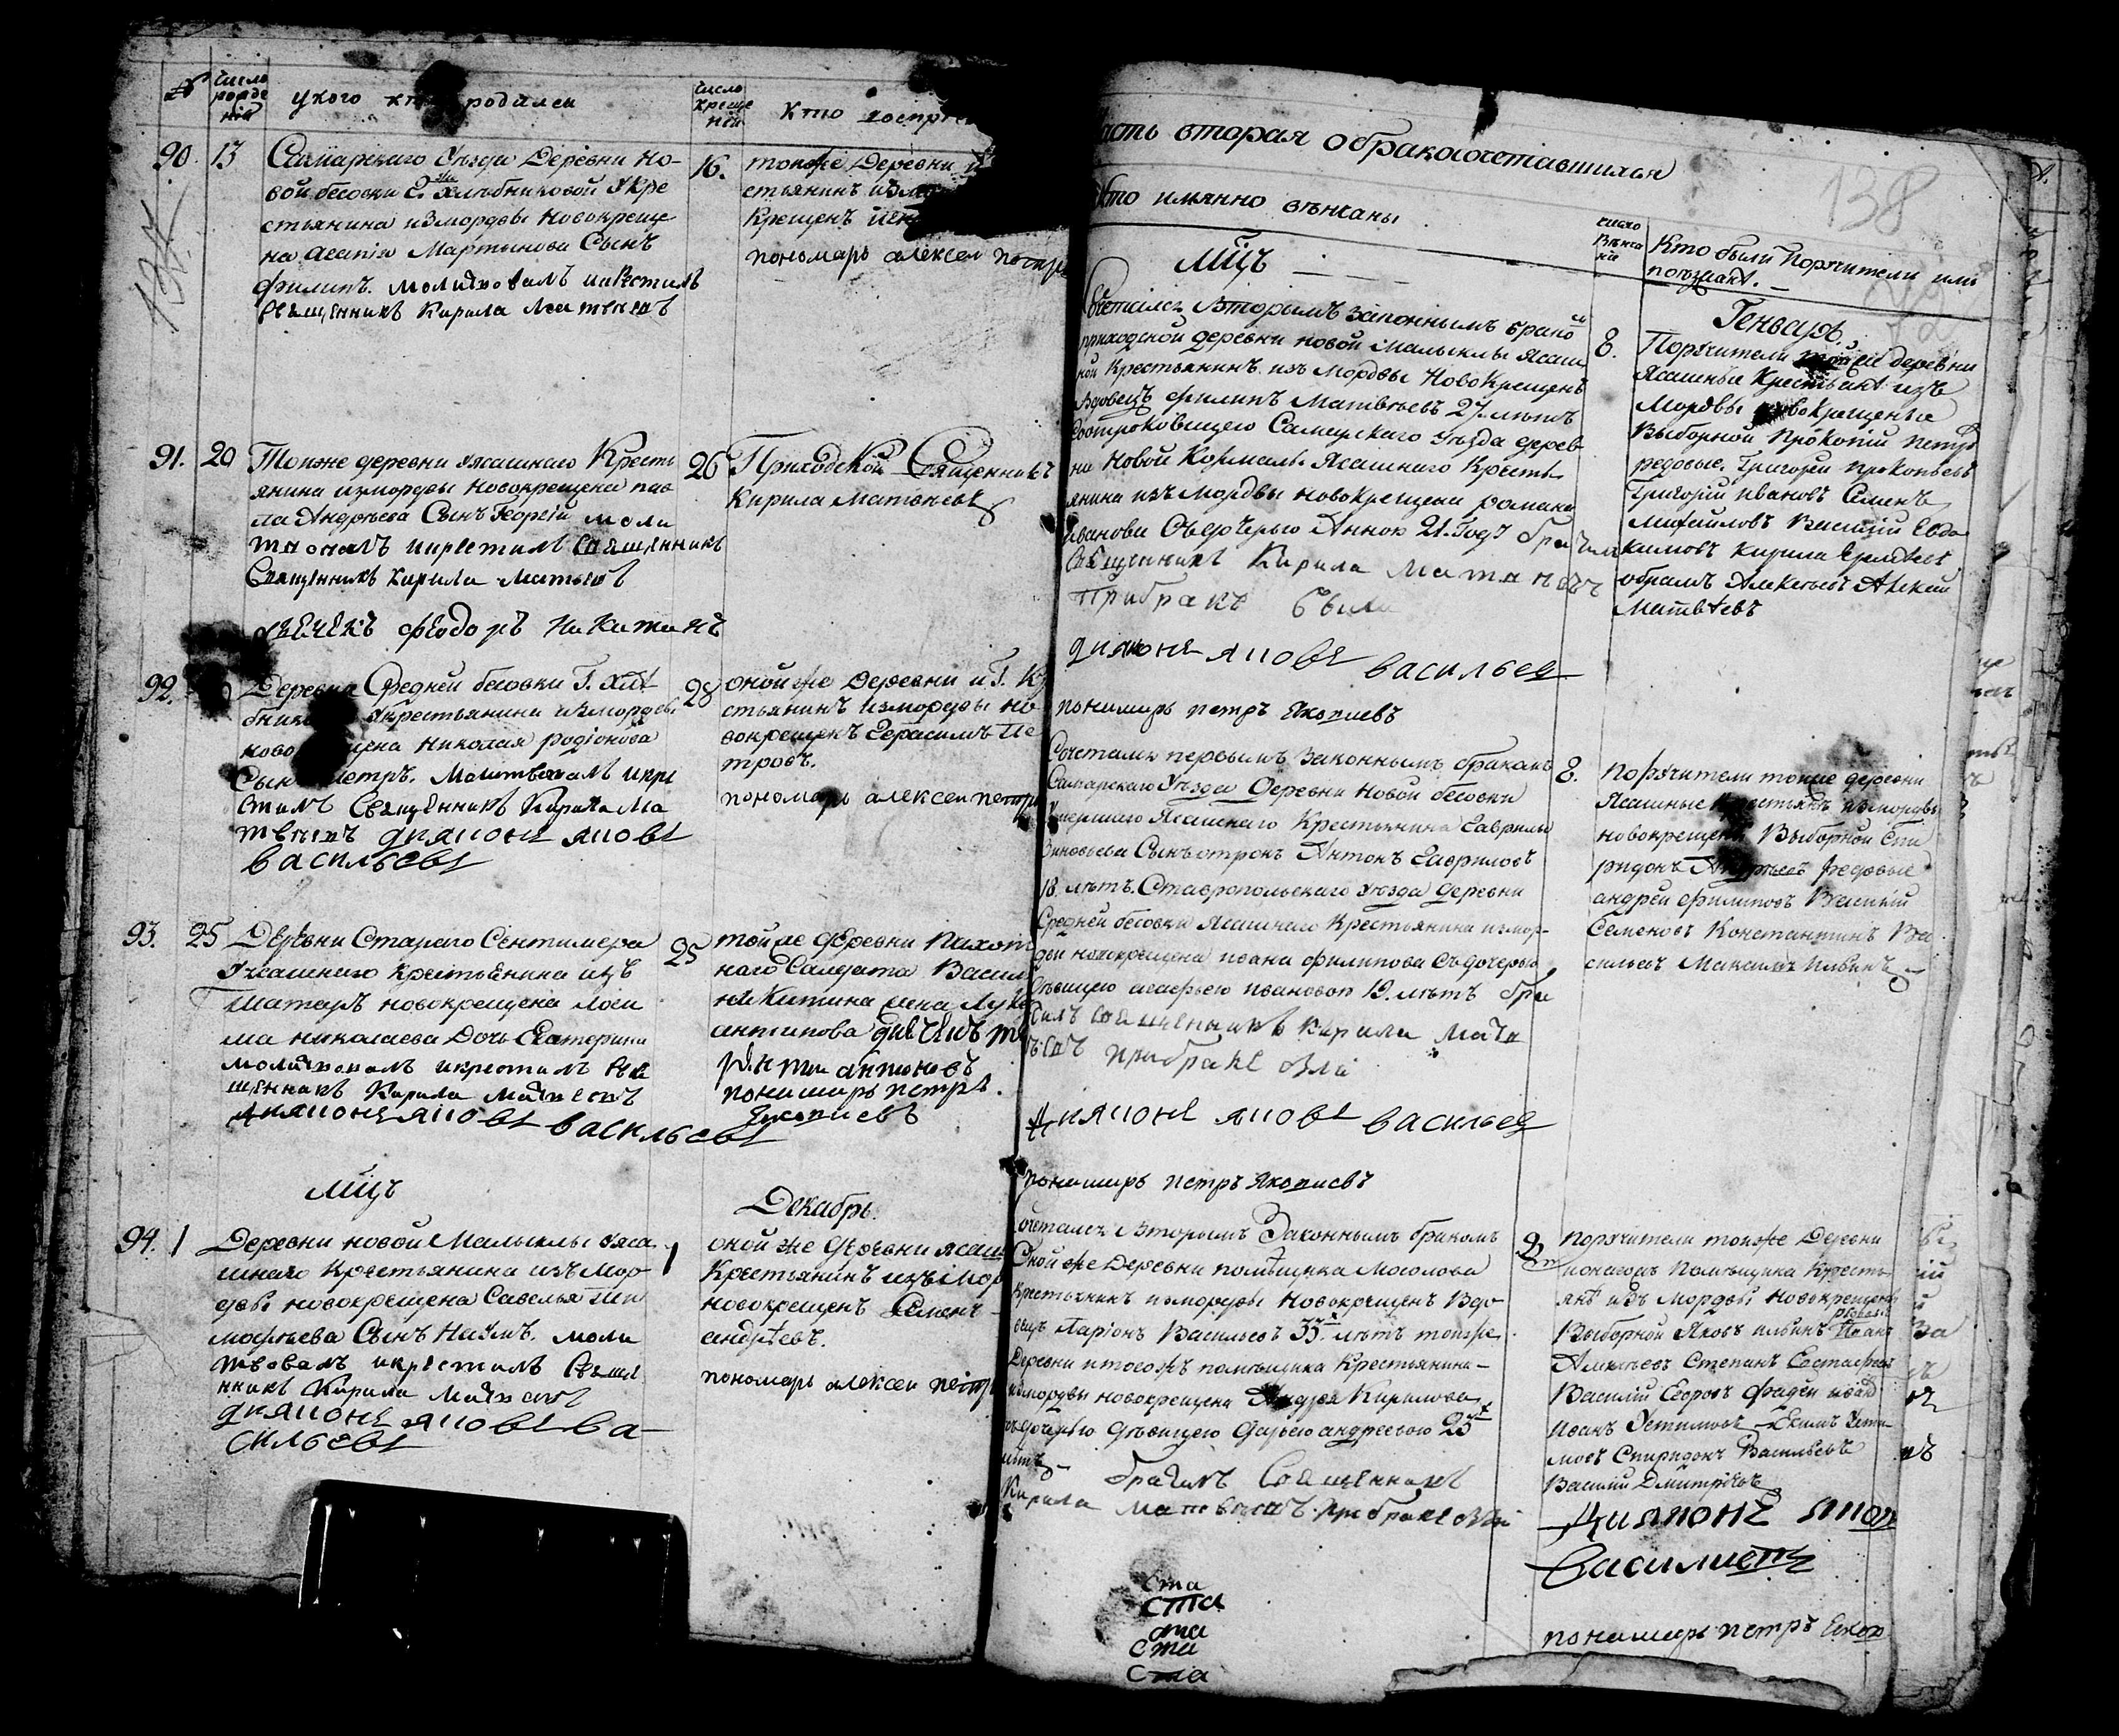 №
число рожде ній
у кого кто родился
число креще нія
кто воспрі
90. 13
Самарскаго Уѣзда Деревни Но-
вой бесовки Г. Хлѣбниковой у кре
стьянина измордвы новокреще
на Мартынова Сынъ
Филипъ. молитвовалъ икрестилъ
священникъ Кирила Матвеевъ
16.
тоиже Деревни
стьянинъ измо
крещенъ
пономарь алексеи петро
91. 20
Тоиже деревни уясашнаго Кресть
янина измордвы Новокрещена пав
ла Андреева Сынъ Георгій моли
твовалъ икрестилъ священникъ
Священникъ Кирила Матвеевъ
дьечекъ феодоръ Никитинъ
26
Приходской Священникъ
Кирила Матвеевъ
92.
Деревни Средней бесовки Г. Хлѣ
бник укрестьянина измордвы
ново щена Николая родіонова
Сынъ петръ. Молитвовалъ икре
стилъ Священникъ Кирила Ма
твеевъ диаконъ яковъ
васильевъ
28
оной же Деревни и Г. К
стьянинъ измордвы но
вокрещенъ Герасимъ Пе
тровъ.
пономарь алексеи петро
93. 25
Деревни Стараго Сентимера
уясашнаго крестьянина изъ
татаръ новокрещена
ма николаева Дочь Екатерина
молитвовалъ икрестилъ свя
щенникъ Кирила Матвеевъ
диаконъ яковъ васильевъ
25
тойже деревни пахот
наго Салдата Васил
никитина жена
антипова
антоновъ
пономарь петръ
Якопиевъ
Мцъ
Декабрь.
94. 1
Деревни новой Малыклы уяса
шнаго крестьянина изъ мор
двы новокрещена Савелья Ти
мофеева Сынъ Наумъ. моли
твовалъ икрестилъ свяще
нникъ Кирила Матвеевъ
диаконъ яковъ ва
сильевъ
1
оной же деревни ясаш
Крестьянинъ изъ мор
новокрещенъ Семенъ
андреевъ.
пономарь алексеи петро
асть вторая о бракосочетавшихся
138
кто имянно вѣнчаны
число Вѣнча нія
Кто были Поручители или
поѣзжане.
Мцъ
Генварь.
сочетался вторымъ законнымъ бракомъ
приходской деревни новой Малыклы ясаш
ной крестьянинъ изъ мордвы Новокрещенъ
вдовецъ Филипъ Матвѣевъ 27. лѣтъ
соотроковицею Самарскаго уѣзда дерев-
ни Новой Кармалы ясашнаго кресть
янина изъ мордвы новокрещена романа
Иванова Съдочерью Анною 21. Году брачил
Священникъ Кирила Матвеевъ
Прибракѣ были
диаконъ яковъ васильевъ
пономарь петръ Якопиевъ
8.
Поручители тойже деревни
Ясашные Крестьяне изъ
Мордвы новокрещеныя
Выборной Прокопій петро
редовые, Григорей прокопьевъ
Григорій ивановъ Семенъ
Михайловъ Василій Евдо
кимовъ Кирила
Алексѣевъ Алексѣй
Матвѣевъ
Сочетался первымъ законнымъ бракомъ
Самарскаго Уѣзда Деревни Новой бесовки
умершаго ясашнаго Крестьянина Гаврилы
Зиновьева Сынъ отрокъ Антонъ Гавриловъ
18. лѣтъ. Ставропольскаго уѣзда деревни
Средней бесовки ясашнаго Крестьянина измор-
двы новокрещена ивана филипова Съдочерью
дѣвицею агафьею ивановою 19. лѣтъ бра
чилъ священникъ Кирила Матв
еевъ прибракѣ были
диаконъ яковъ васильевъ
пономарь петръ Якопиевъ
8.
поручители тойже деревни
Ясашные крестьяне измордвы
новокрещены Выборной Спи
ридонъ Андреевъ редовые
андрей филиповъ Василій
Семеновъ Константинъ Ва
сильевъ Максимъ Ильинъ
сочетался вторымъ Законнымъ бракомъ
Оной же Деревни помѣщика Мосолова
крестьянинъ измордвы новокрещенъ Вдо
вецъ Ларіонъ Васильевъ 35. лѣтъ тоиже
Деревни итогожъ помѣщика Крестьянина
измордвы новокрещена Андрея Кирилова
съдочерью дѣвицею Дарьею андреевою 25
лѣтъ
брачилъ Священникъ
Кирила Матвеевъ прибракѣ были
поручители тоиже Деревни
помѣщика Кресть-
янѣ изъ Мордвы новокрещены
Выборной Яковъ ильинъ Иванъ
Алексѣевъ Степанъ Евстафьевъ
Василій Егоровъ Фадѣй иван
Иванъ Устимовъ Екимъ Усти-
мовъ Спиридонъ Васильевъ
Василій Дмитріевъ
Диаконъ яков
Васильевъ
пономарь петръ
Ста
Ста
ста
Ста
Ста